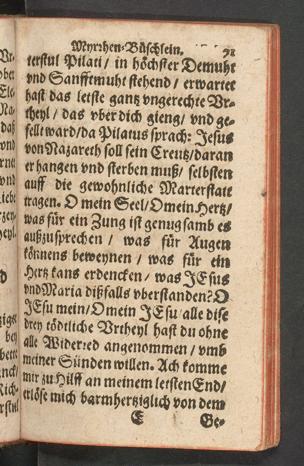 Myrrhen-Büschlein. 91
terstul Pilati / in höchster Demuht
vnd Sanfftmuht stehend / erwartet
hast das letste gantz vngerechte Vr-
theyl / das vber dich gieng / vnd ge-
fellt ward / da Pilatus sprach: Jesus
von Nazareth soll sein Creutz / daran
er hangen vnd sterben muß / selbsten
auff die gewohnliche Marterstatt
tragen. O mein Seel / O mein Hertz /
was für ein Zung ist genugsamb es
außzusprechen / was für Augen
könnens beweynen / was für ein
Hertz kans erdencken / was JEsus
vnd Maria dißfalls vberstanden? O
JEsu mein / O mein JEsu / alle dise
drey tödtliche Vrtheyl hast du ohne
alle Widerred angenommen / vmb
meiner Sünden willen. Ach komme
mir zu Hilff an meinem letsten End /
erlöse mich barmhertziglich von dem
E Ge-